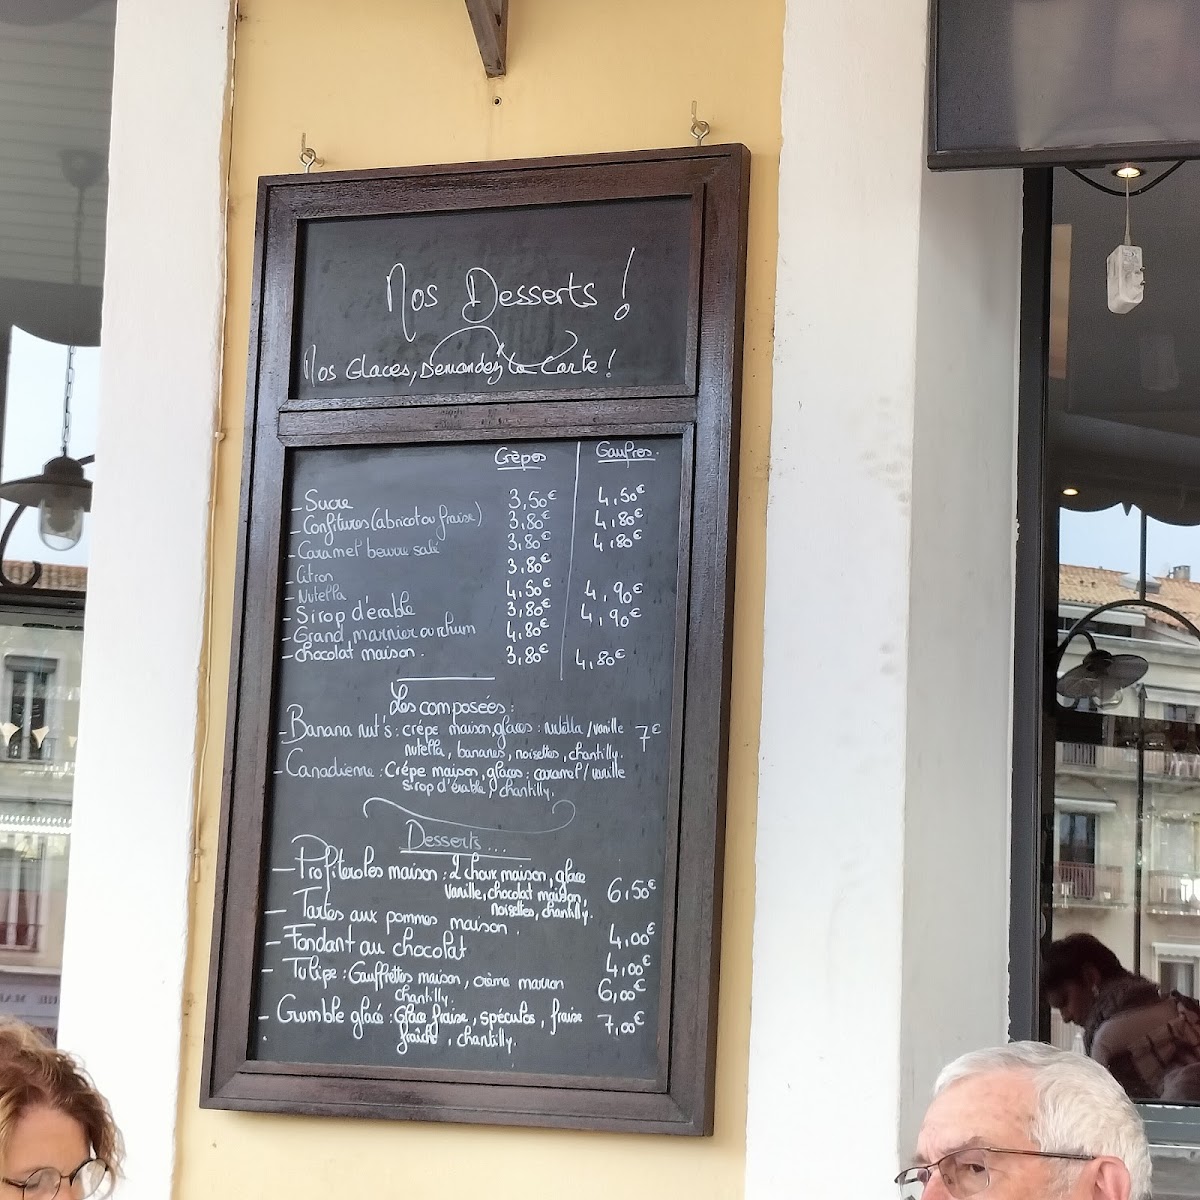 Nos Desserts !
Nos Glaces, Demandez la Carte !
Crêpes Gaufres.
- Sucre 3,50€ 4,50€
- Confitures (abricot ou fraise) 3,80€ 4,80€
- Caramel beurre salé 3,80€ 4,80€
- Citron 3,80€
- Nutella 4,50€ 4,90€
- Sirop d'érable 3,80€ 4,90€
- Grand marnier ou rhum 4,80€
- Chocolat maison. 3,80€ 4,80€
Les composées :
- Banana nut's : crêpe maison, glaces : nutella / vanille 7€
nutella, bananes, noisettes, chantilly.
- Canadienne : Crêpe maison, glaces : caramel / vanille
sirop d'érable, chantilly.
Desserts ...
- Profiteroles maison : 2 choux maison, glace
vanille, chocolat maison, 6,50€
noisettes, chantilly.
- Tartes aux pommes maison. 4,00€
- Fondant au chocolat 4,00€
- Tulipe : Gauffrettes maison, crème marron 6,00€
chantilly.
- Crumble glacé : Glace fraise, spéculos, fraise 7,00€
fraîche, chantilly.